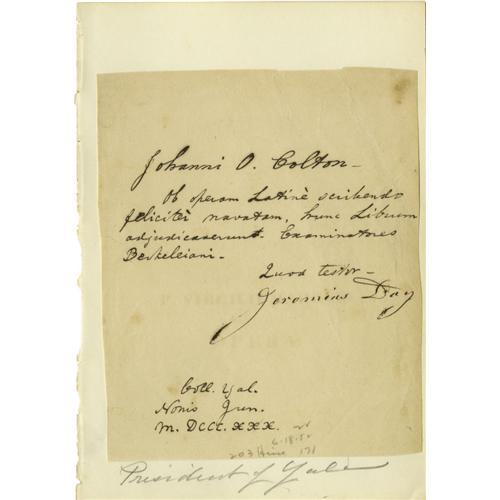 Johanni O. Colton -
Ob operam Latinè scribendo
feliciter navatam, hunc Librum
adjudicaverunt Examinatores
Berkeleiani -
Quod testor -
Jeremias Day
Coll. Yal.
Nonis Jun.
M.DCCC.XXX.
6-18-52
203 171
President of Yale